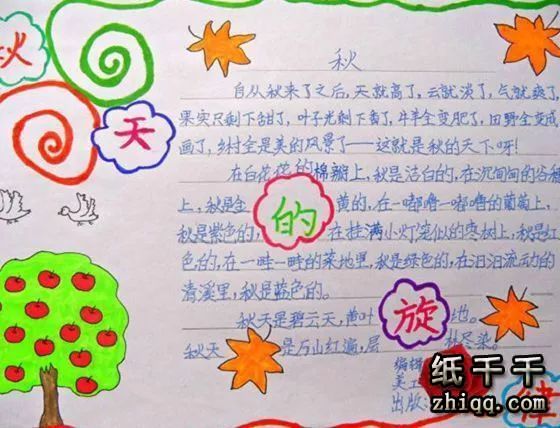 秋
天
的
旋
律
秋
自从秋来了之后,天就高了,云就淡了,气就爽了
果实只剩下甜了,叶子光剩下香了,牛羊全变肥了,田野全变成
画了,乡村全是美的风景了——这就是秋的天下呀!
在白花花的棉瓣上,秋是洁白的,在沉甸甸的谷穗
上,秋是金黄的,在一嘟噜一嘟噜的葡萄上,
秋是紫色的,在挂满小灯笼似的枣树上,秋是红
色的,在一畦一畦的菜地里,秋是绿色的,在汩汩流动的
清溪里,秋是蓝色的。
秋天是碧云天,黄叶地。
秋天是万山红遍,层林尽染。
编辑
美工
出版
纸千千
zhiqq.com